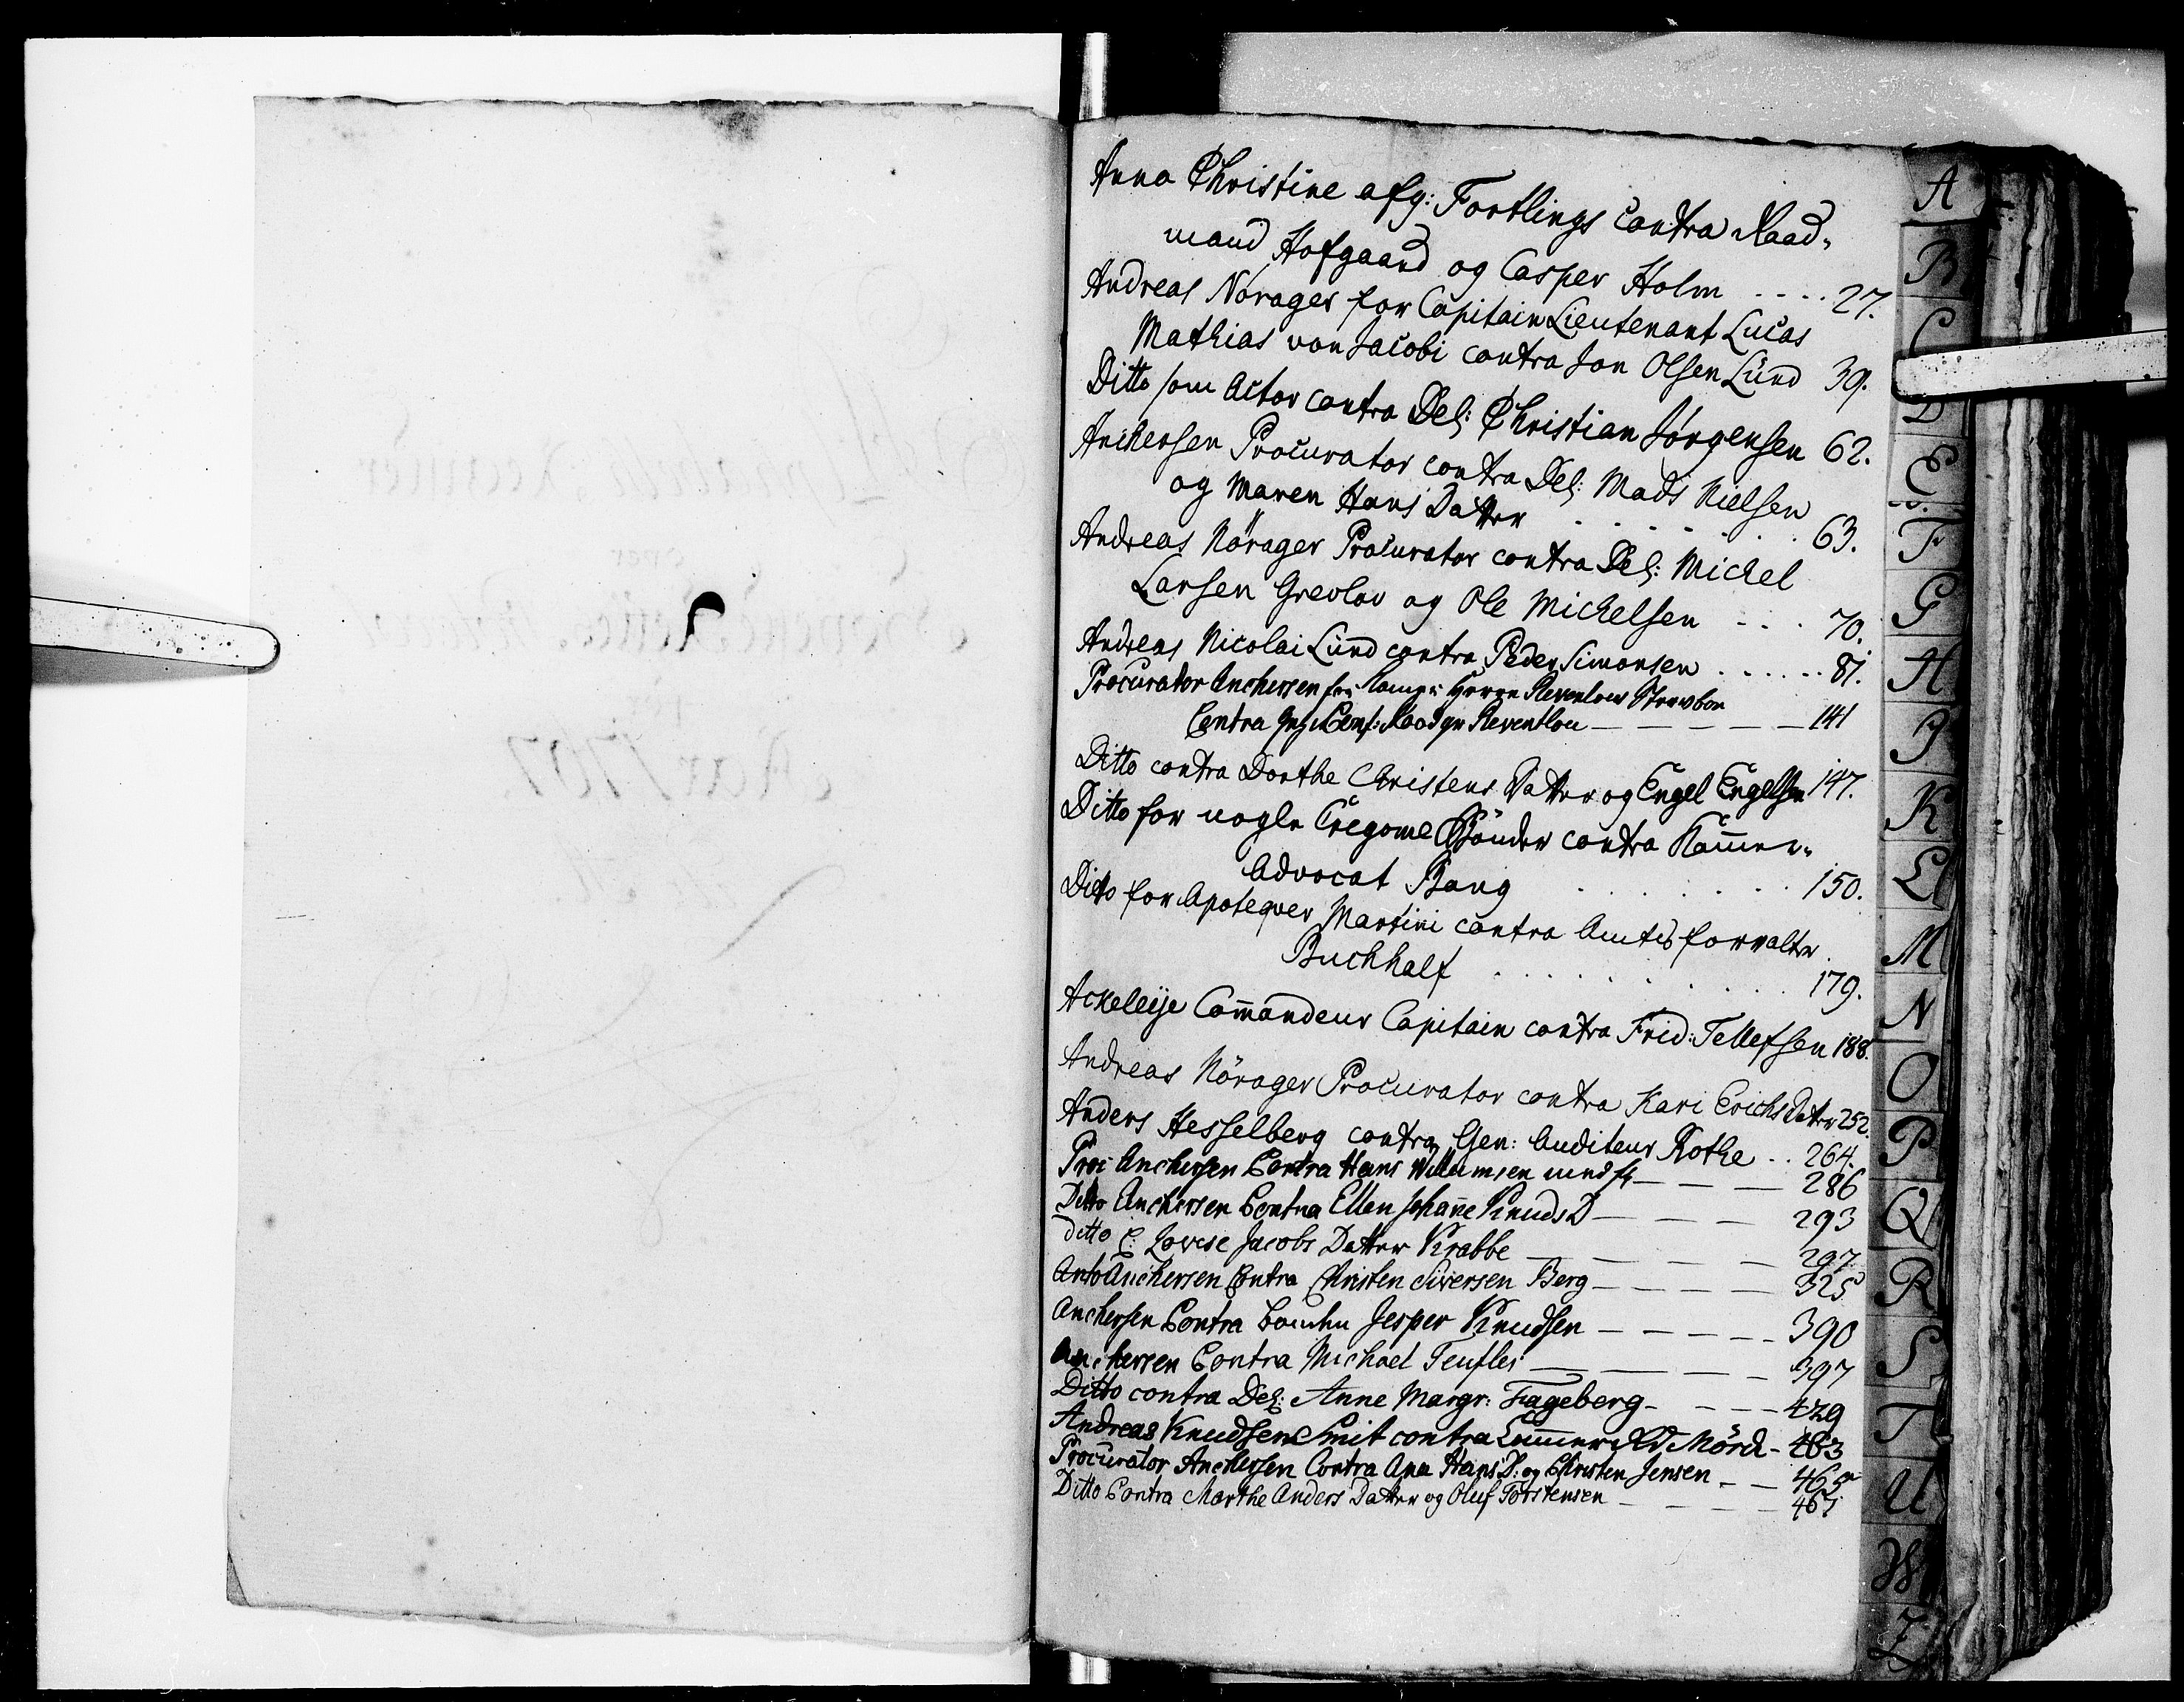 Anna Christine afg: Fortlings contra Raad-
mand Hofgaard og Casper Holm .... 27.
Andreas Nørager for Capitain Lieutenant Lucas
Mathias von Jacobi contra Jon Olsen Lund 39.
Ditto som Actor contra Del: Christian Jørgensen 62.
Anchersen Procurator contra Del: Mads Nielsen
og Maren Hans Datter ...... 63.
Andreas Nörager Procurator contra Del: Michel
Larsen Grevlov og Ole Michelsen ... 70.
Andreas Nicolai Lund contra Peder Simonsen ...... 81.
Procurator Anchersen Reventlows
Contra Reventlou — — — — — 141
Ditto contra Dorthe Christens Datter og Engel Engelsen 147.
Ditto for nogle Tregome Bönder contra Kammer-
Advocat Bang ...... 150.
Ditto for Apoteqver Martini contra Amtsforvalter
Buchhalf ...... 179.
Ackeleije Commandeur Capitain contra Frid: Tellefsen 188.
Andreas Nörager Procurator contra Kari Erichs Datter 252.
Anders Hesselberg contra Gen: Auditeur Rothe .. 264.
Proc: Anchersen Contra Hans Willumsen — — — 286
Ditto Anchersen Contra Ellen Johanne Knuds D — — — 293
ditto C: Lovise Jacobs Datter Krabbe — — — — 297
Anchersen Contra Christen Siversen Berg — — — — 325
Anchersen Contra Jesper Knudsen — — — — — 390
Anchersen Contra Michael Teufler — — — — 397
Ditto contra Del: Anne Margr: Fageberg - — — — 429
Andreas Knudsen Smit contra Mörch - 463
Procurator Anchersen Contra Ane Hans D: og Christen Jensen - — 465
Ditto Contra Marthe Anders Datter og Oluf Torstensen — — — — 467
A
B
C
D
E
F
G
H
I
K
L
M
N
O
P
Q
R
S
T
U
W
Z